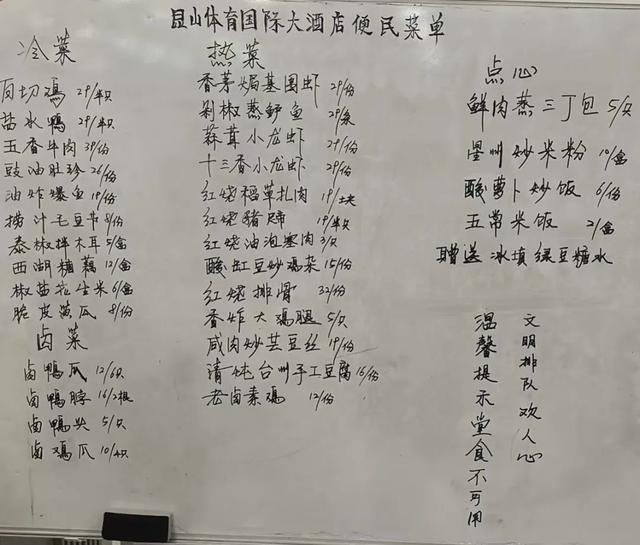 昆山体育国际大酒店便民菜单
冷菜
白切鸡 29/半只
盐水鸭 29/半只
五香牛肉 39/份
豉油肚珍 26/份
油炸爆鱼 19/份
捞汁毛豆节 8/份
泰椒拌木耳 5/盒
西湖糖藕 12/盒
椒苗花生米 6/盒
脆皮黄瓜 8/份
卤菜
卤鸭瓜 12/6只
卤鸭脖 16/2根
卤鸭头 5/只
卤鸡爪 10/4只
热菜
香茅焗基围虾 29/份
剁椒蒸鲈鱼 29/条
蒜茸小龙虾 29/份
十三香小龙虾 29/份
红烧稻草扎肉 19/块
红烧猪蹄 19/半只
红烧油泡塞肉 3/只
酸缸豆炒鸡杂 15/份
红烧排骨 32/份
香炸大鸡腿 5/只
咸肉炒芸豆丝 19/份
清炖台州手工豆腐 16/份
老卤素鸡 12/份
点心
鲜肉蒸三丁包 5/只
星州炒米粉 10/盒
酸萝卜炒饭 6/份
五常米饭 2/盒
赠送冰填绿豆糖水
文明排队欢人心
温馨提示堂食不可用